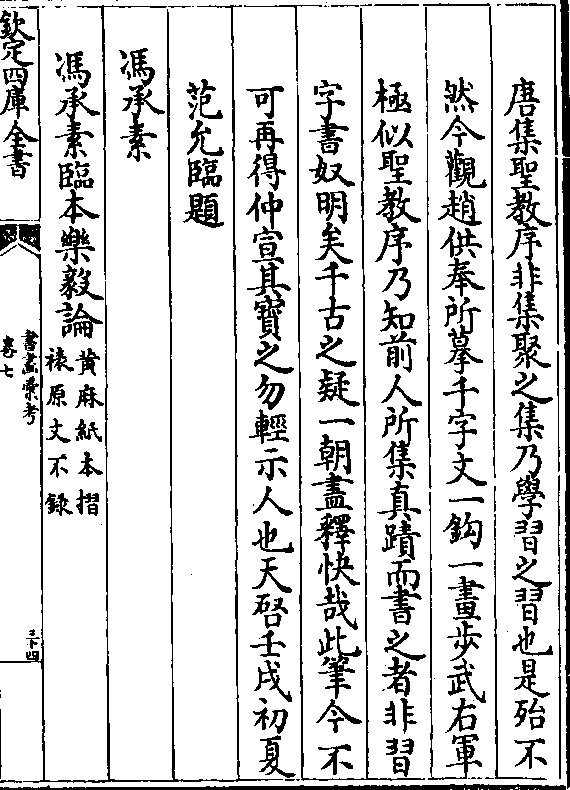 唐集聖教序非集聚之集乃學習之習也是殆不
然今觀趙供奉所摹千字文一鈎一畫步武右軍
極似聖教序乃知前人所集真蹟而書之者非習
字書奴明矣千古之疑一朝盡釋快哉此筆今不
可再得仲宣其寶之勿輕示人也天啓壬戌初夏
范允臨題
馮承素
馮承素臨本樂毅論黄麻紙本摺
裱原文不録
欽定四庫全書
書畫彙考
卷七
三十四